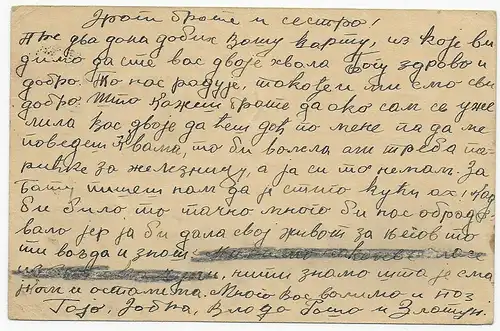 Драги брате и сестро!
Пре два дана добих вашу карту, из које ви
димо да сте вас двоје хвала Богу здраво и
добро. То нас радује, такође и ми смо сви
добро. Што кажеш брате да ако сам се уже
лила вас двоје да ћеш доћ по мене па да ме
поведеш к вама, то би волела али треба па
рице за железницу, а ја си то немам. За
Бату пишеш нам да је стиго кући ах! Кад
би било то тачно много би нас обрадо
вало јер ја би дала свој живот за његов то
ти вазда и знаш.
нити знамо шта је сла
ном и осталима. Много вас волимо и поз
Гојо, Јовка, Влада и Златун.